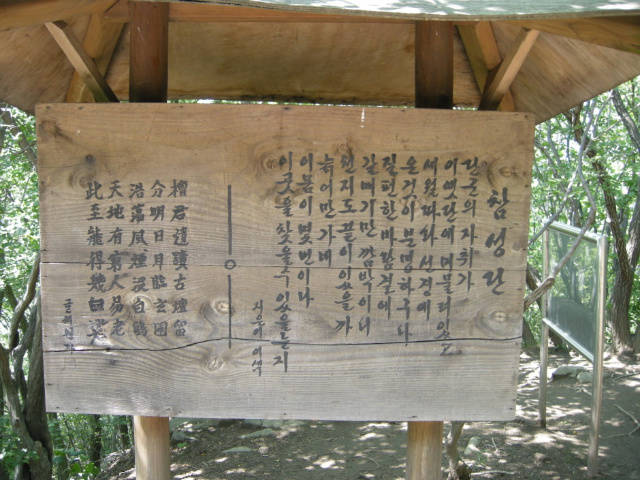 참성단
단군의 자취가
이옛단에 머물러 있고
세월따라 선경에
온것이 분명하구나
질펀한 바람결에
갈매기만 깜박이니
천지도 끝이 있을까
늙어만 가네
이몸이 몇번이나
이곳을 찾을수 있을른지
지은이 이색
檀君遺蹟古壇留
分明日月臨玄圃
浩蕩風煙沒白鷗
天地有窮人易老
此 能得幾回